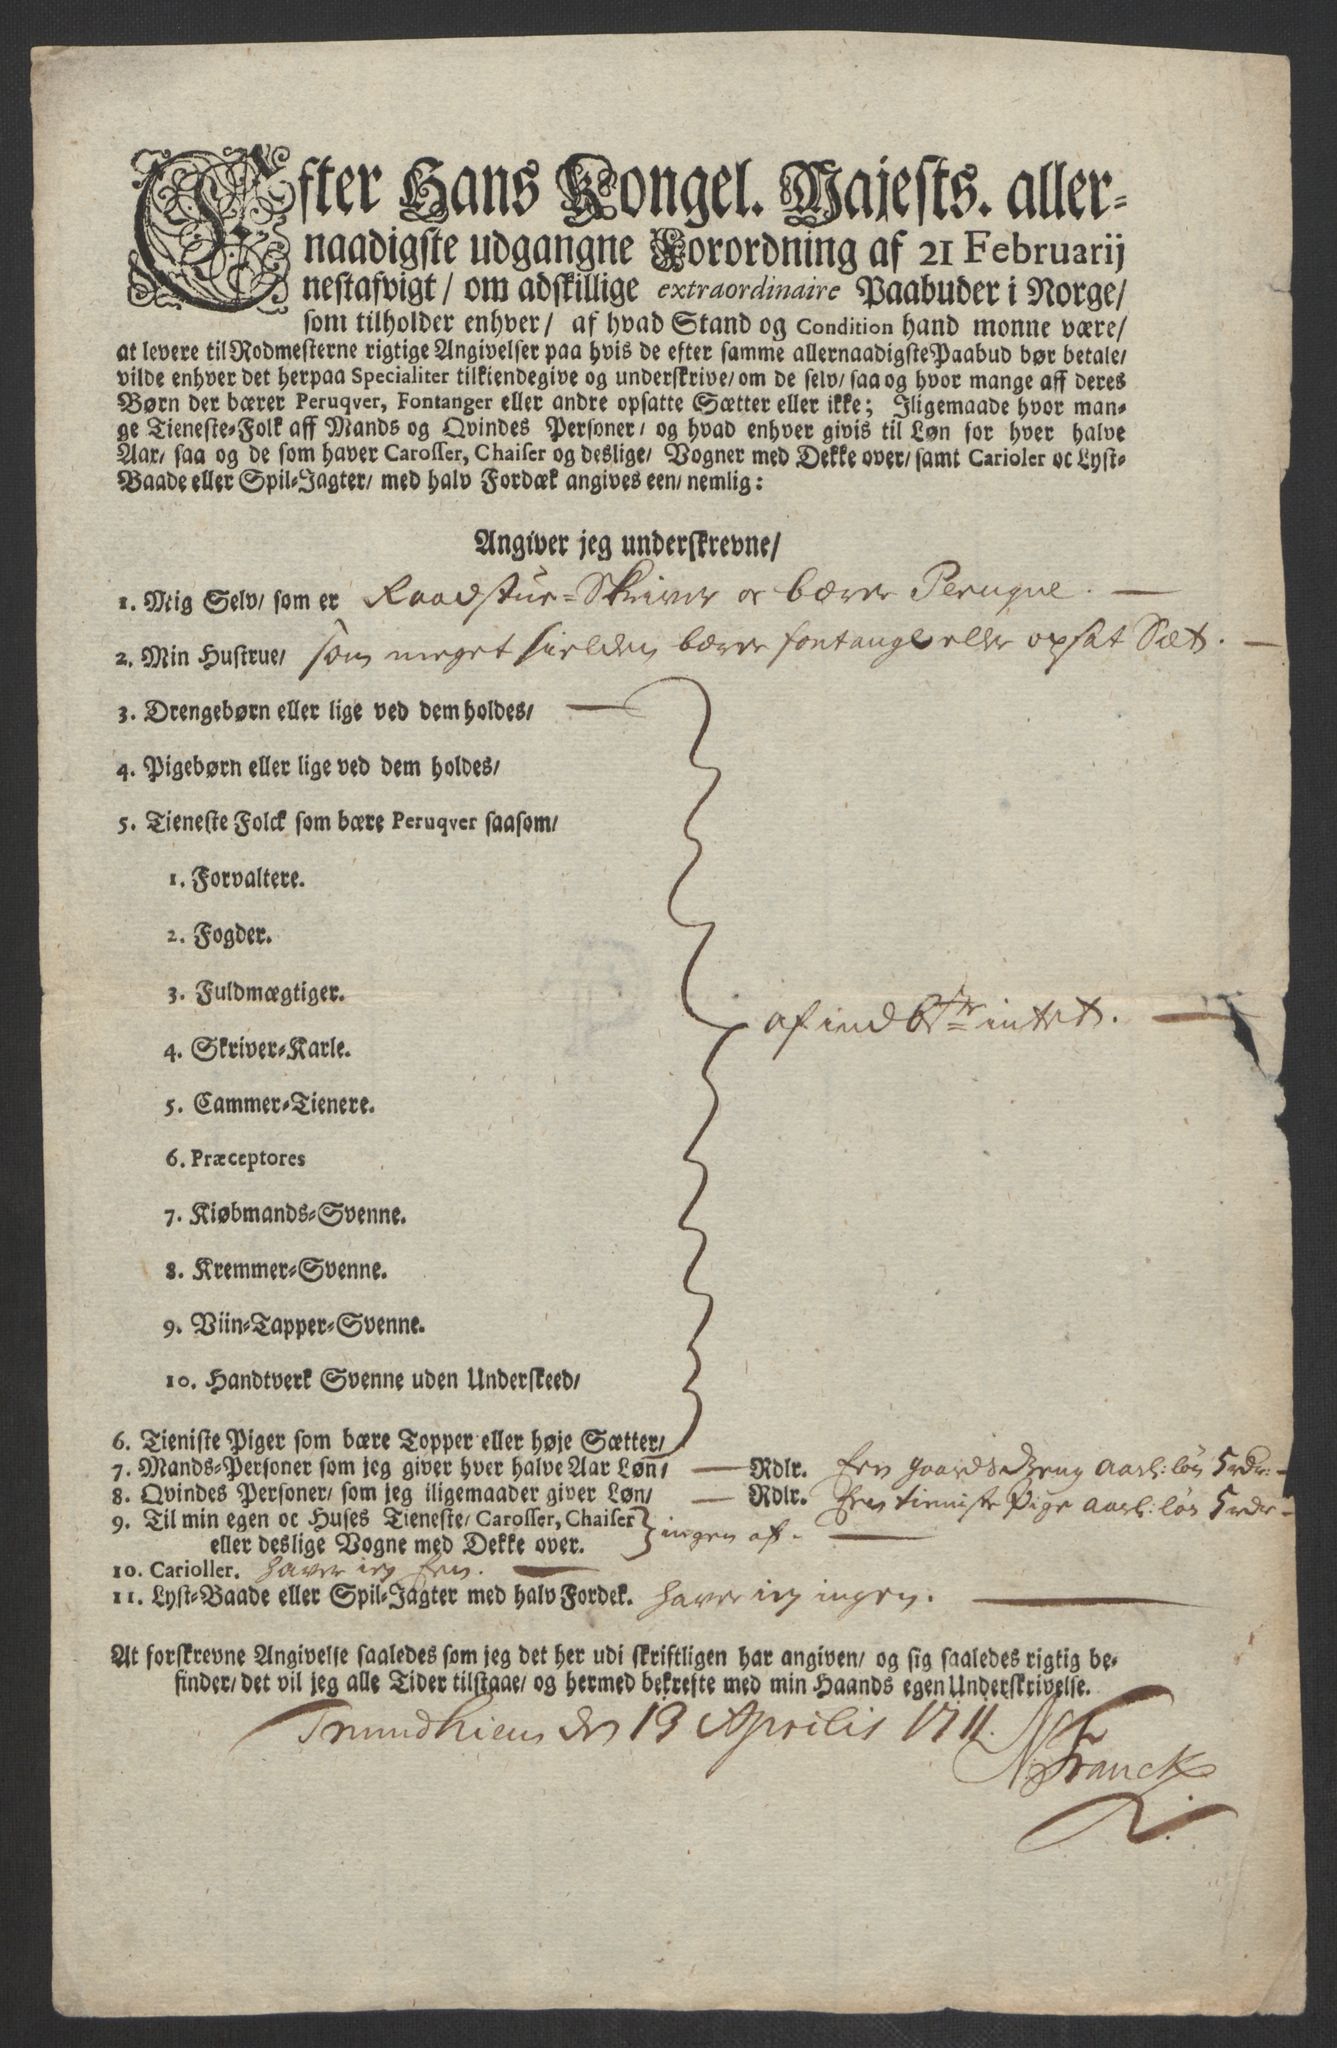 Efter Hans Kongel. Majests. aller-
naadigste udgangne Forordning af 21 Februarij
nestafvigt/ om adskillige extraordinaire Paabuder i Norge/
som tilholder enhver/ af hvad Stand og Condition hand monne være/
at levere til Rodmesterne rigtige Angivelser paa hvis de efter samme allernaadigste Paabud bør betale/
vilde enhver det herpaa Specialiter tilkiendegive og underskrive/ om de selv/ saa og hvor mange aff deres
Børn der bærer Peruqver, Fontanger eller andre opsatte Sætter eller ikke; Iligemaade hvor man-
ge Tieneste-Folk aff Mands og Qvindes Personer/ og hvad enhver givis til Løn for hver halve
Aar/ saa og de som haver Carosser, Chaiser og deslige/ Vogner med Dekke over/ samt Carioler oc Lyst-
Baade eller Spil-Jagter/ med halv Fordæk angives een/ nemlig:
Angiver jeg underskrevne/
1. Mig Selv/ som er Raadstue-Skriver oc bærer Peruque.
2. Min Hustrue/ som meget sielden bærer fontange eller opsat Sæt.
3. Drengebørn eller lige ved dem holdes/
4. Pigebørn eller lige ved dem holdes/
5. Tieneste Folck som bære Peruqver saasom/
1. Forvaltere.
2. Fogder.
3. Fuldmægtiger.
af intet.
4. Skriver-Karle.
5. Cammer-Tienere.
6. Præceptores
7. Kiøbmands-Svenne.
8. Kremmer-Svenne.
9. Viin-Tapper-Svenne.
10. Handtverk Svenne uden Underskeed/
6. Tieniste Piger som bære Topper eller høje Sætter/
7. Mands-Personer som jeg giver hver halve Aar Løn/ Rdlr. Een gaardsdreng aarl: løn 5 rdr:
8. Qvindes Personer/ som jeg iligemaader giver Løn/ Rdlr. Een tieniste Pige aarl: løn 5 rdr
9. Til min egen oc Huses Tieneste/ Carosser, Chaiser
eller deslige Vogne med Dekke over. } ingen af.
10. Carioller. haver ieg Een.
11. Lyst-Baade eller Spil-Jagter med halv Fordek. haver ieg ingen.
At forskrevne Angivelse saaledes som jeg det her udi skriftligen har angiven/ og sig saaledes rigtig be-
finder/ det vil jeg alle Tider tilstaae/ og hermed bekrefte med min Haands egen Underskrivelse.
Trundhiem den 13 Aprilis 1711.
Franck